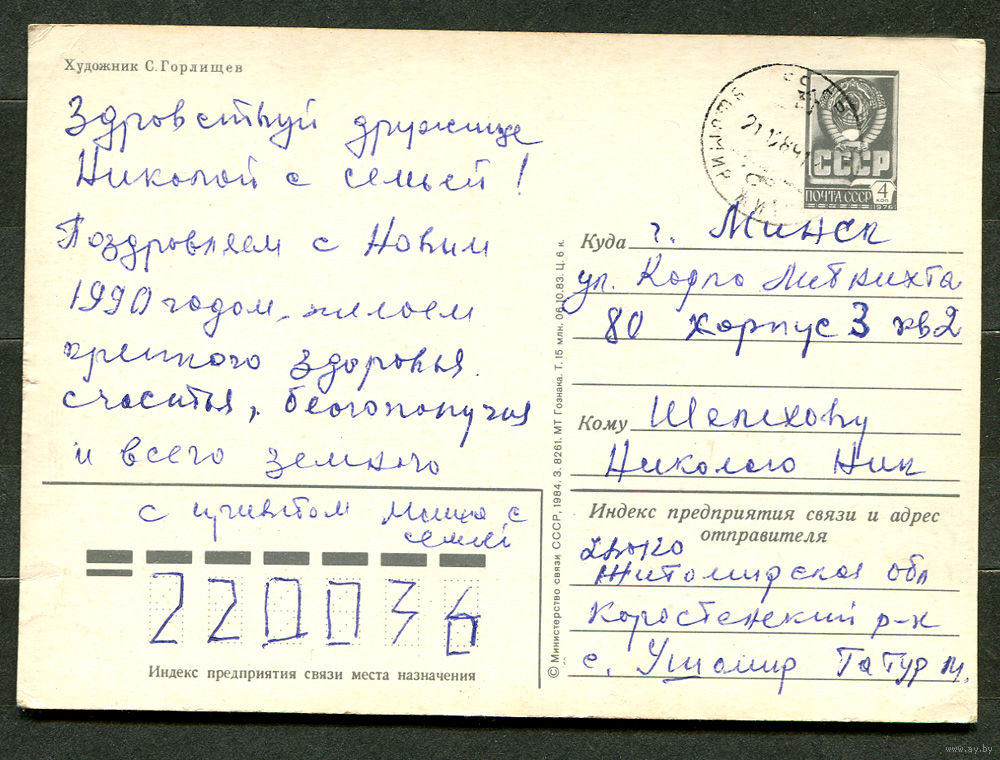 Художник С. Горлищев
Здравствуй дружище
Николай с семьей!
Поздравляем с Новым
1990 годом, желаем
крепкого здоровья.
счастья, благополучия
и всего земного
с приветом Миша с
семьей
220036
Индекс предприятия связи места назначения
© Министерство связи СССР, 1984. З. 8261. МТ Гознака. Т. 15 млн. 06.10.83. Ц. 6 к.
СССР
ПОЧТА СССР
4
КОП
1976
Куда г. Минск
ул. Карла Либкнихта
80 корпус 3 кв 2
Кому Шелехову
Николаю Ник
Индекс предприятия связи и адрес
отправителя
Житомирская обл
Коростенский р-н
с. Ушомир Татур М.
www.ay.by